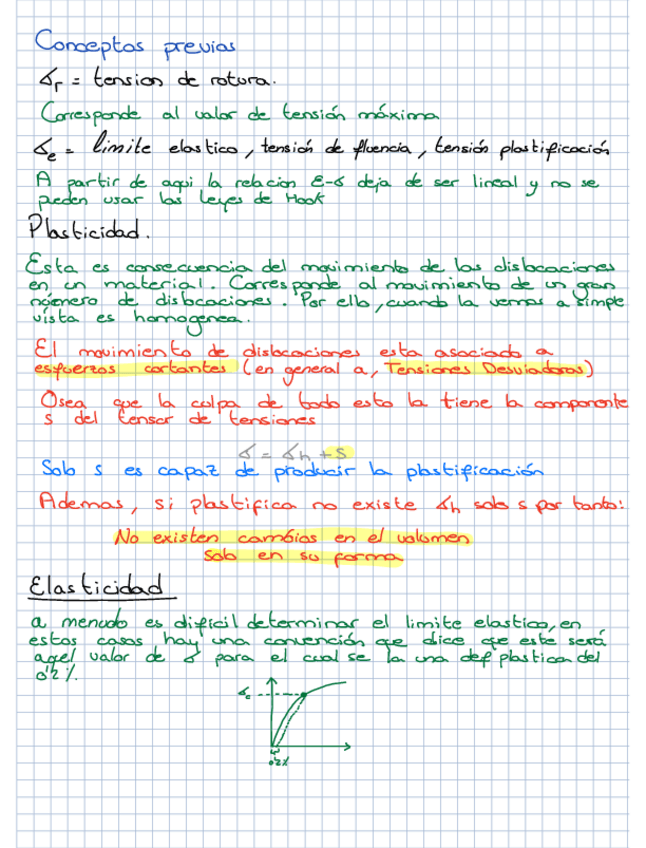 Conceptos previos
σr = tension de rotura.
Corresponde al valor de tensión máxima
σe = limite elastico, tensión de fluencia, tensión plastificación
A partir de aqui la relacion ε-σ deja de ser lineal y no se
pueden usar las leyes de Hook
Plasticidad.
Esta es consecuencia del movimiento de las dislocaciones
en un material. Corresponde al movimiento de un gran
número de dislocaciones. Por ello, cuando la vemos a simple
vista es homogenea.
El movimiento de dislocaciones esta asociado a
esfuerzos cortantes (en general a, Tensiones Desviadoras)
Osea que la culpa de todo esto la tiene la componente
s del tensor de tensiones
σ = σh + s
Solo s es capaz de producir la plastificación
Ademas, si plastifica no existe σh solo s por tanto:
No existen cambios en el volumen
Solo en su forma
Elasticidad
a menudo es dificil determinar el limite elastico, en
estos casos hay una convención que dice que este será
aqel valor de σ para el cual se la una def plastica del
0'2%.
σe
0'2%